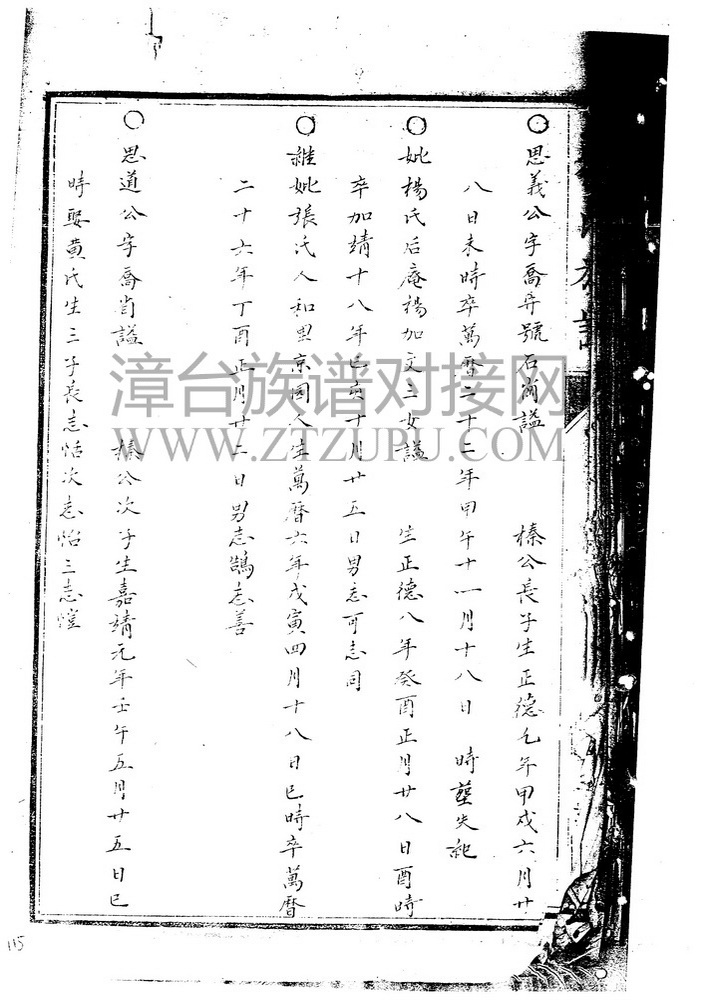 思義公字喬弁號石崗謚 榛公長子生正德九年甲戌六月廿
八日未時卒萬曆二十二年甲午十一月十八日 時塟失紀
妣楊氏后庵楊加文三女謚 生正德八年癸酉正月廿八日酉時
卒加靖十八年已亥十月廿五日男志可志同
継妣張氏人和里京园人生萬曆六年戊寅四月十八日巳時卒萬曆
二十六年丁酉正月廿二日男志鵠志善
思道公字喬肖謚 榛公次子生嘉靖元年壬午五月廿五日巳
時娶黄氏生三子長志恬次志怡三志愷
漳台族谱对接网
WWW.ZTZUPU.COM
115